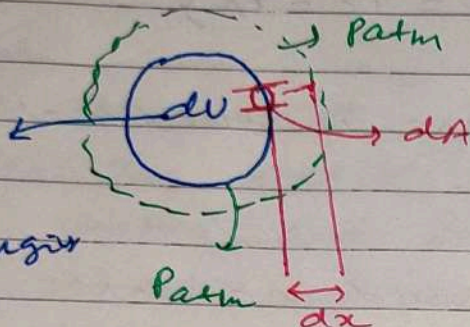 Patm
dU
dA
Patm
dx